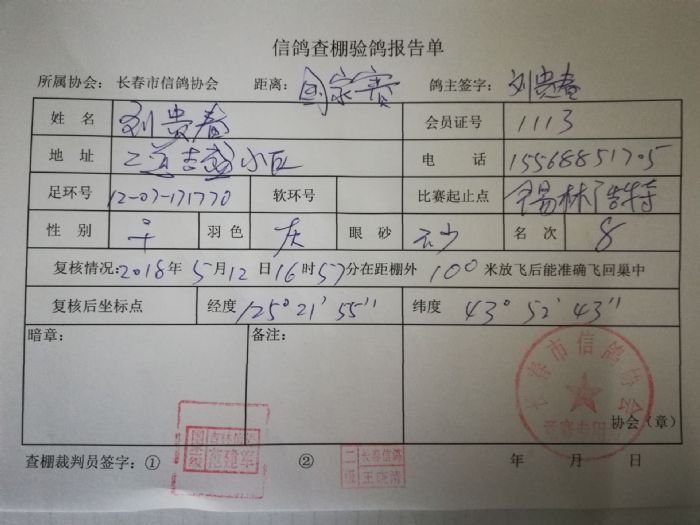 信鸽查棚验鸽报告单
所属协会： 长春市信鸽协会 距离： 国家赛 鸽主签字： 刘贵春
姓 名 刘贵春 会员证号 1113
地 址 二道吉盛小区 电 话 15568851705
足环号 12-07-171770 软环号 比赛起止点 锡林浩特
性 别 羽色 灰 眼 砂 沙 名 次 8
复核情况：2018年 5月12日16时57分在距棚外 100米放飞后能准确飞回巢中
复核后坐标点 经度 125° 21' 55" 纬度 43° 52' 43"
暗章： 备注：
长春市信鸽协会
协会（章）
查棚裁判员签字：① ② 年 月 日
二级 长春信鸽 王晓清